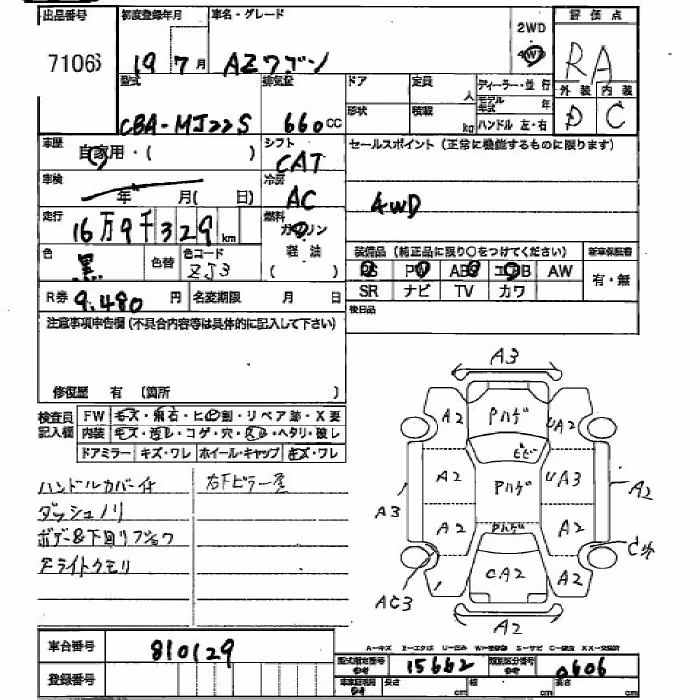 出品番号 初度登録年月 車名・グレード 2WD 評価点
7106 19 7月 AZワゴン 4WD RA
型式 排気量 ドア 定員 人 ディーラー・並行 外装 内装
CBA-MJ22S 660cc 形状 積載 kg モデル年式 年 D C
ハンドル 左・右
車歴 自家用・( ) シフト CAT セールスポイント (正常に機能するものに限ります)
車検 年 月( 日) 冷房 AC 4WD
走行 16万9千329km 燃料 ガソリン
軽油
( )
装備品 (純正品に限り○をつけてください) 新車保証書
色 黒 色替 色コード ZJ3 PS PW ABS エアB AW 有・無
R券 9,480円 名変期限 月 日 SR ナビ TV カワ
後日品
注意事項申告欄 (不具合内容等は具体的に記入して下さい)
修復歴 有 (箇所 )
検査員記入欄 FW キズ・飛石・ヒビ割・リペア跡・X要
内装 キズ・汚レ・コゲ・穴・スレ・ヘタリ・破レ
ドアミラー キズ・ワレ ホイール・キャップ キズ・ワレ
ハンドルカバー付 右下ピラー
ダッシュノリ
ボデー&下回リフショク
Fライトクモリ
A3
A2 Pハゲ UA2
ヒビ
A2 Pハゲ UA3
A3 A2
A2 Pハゲ A2
CA2 A2
AC3
A2
車台番号 810129
登録番号
型式指定番号 参考 15662 類別区分番号 参考 0606
長さ cm 幅 cm 高さ cm